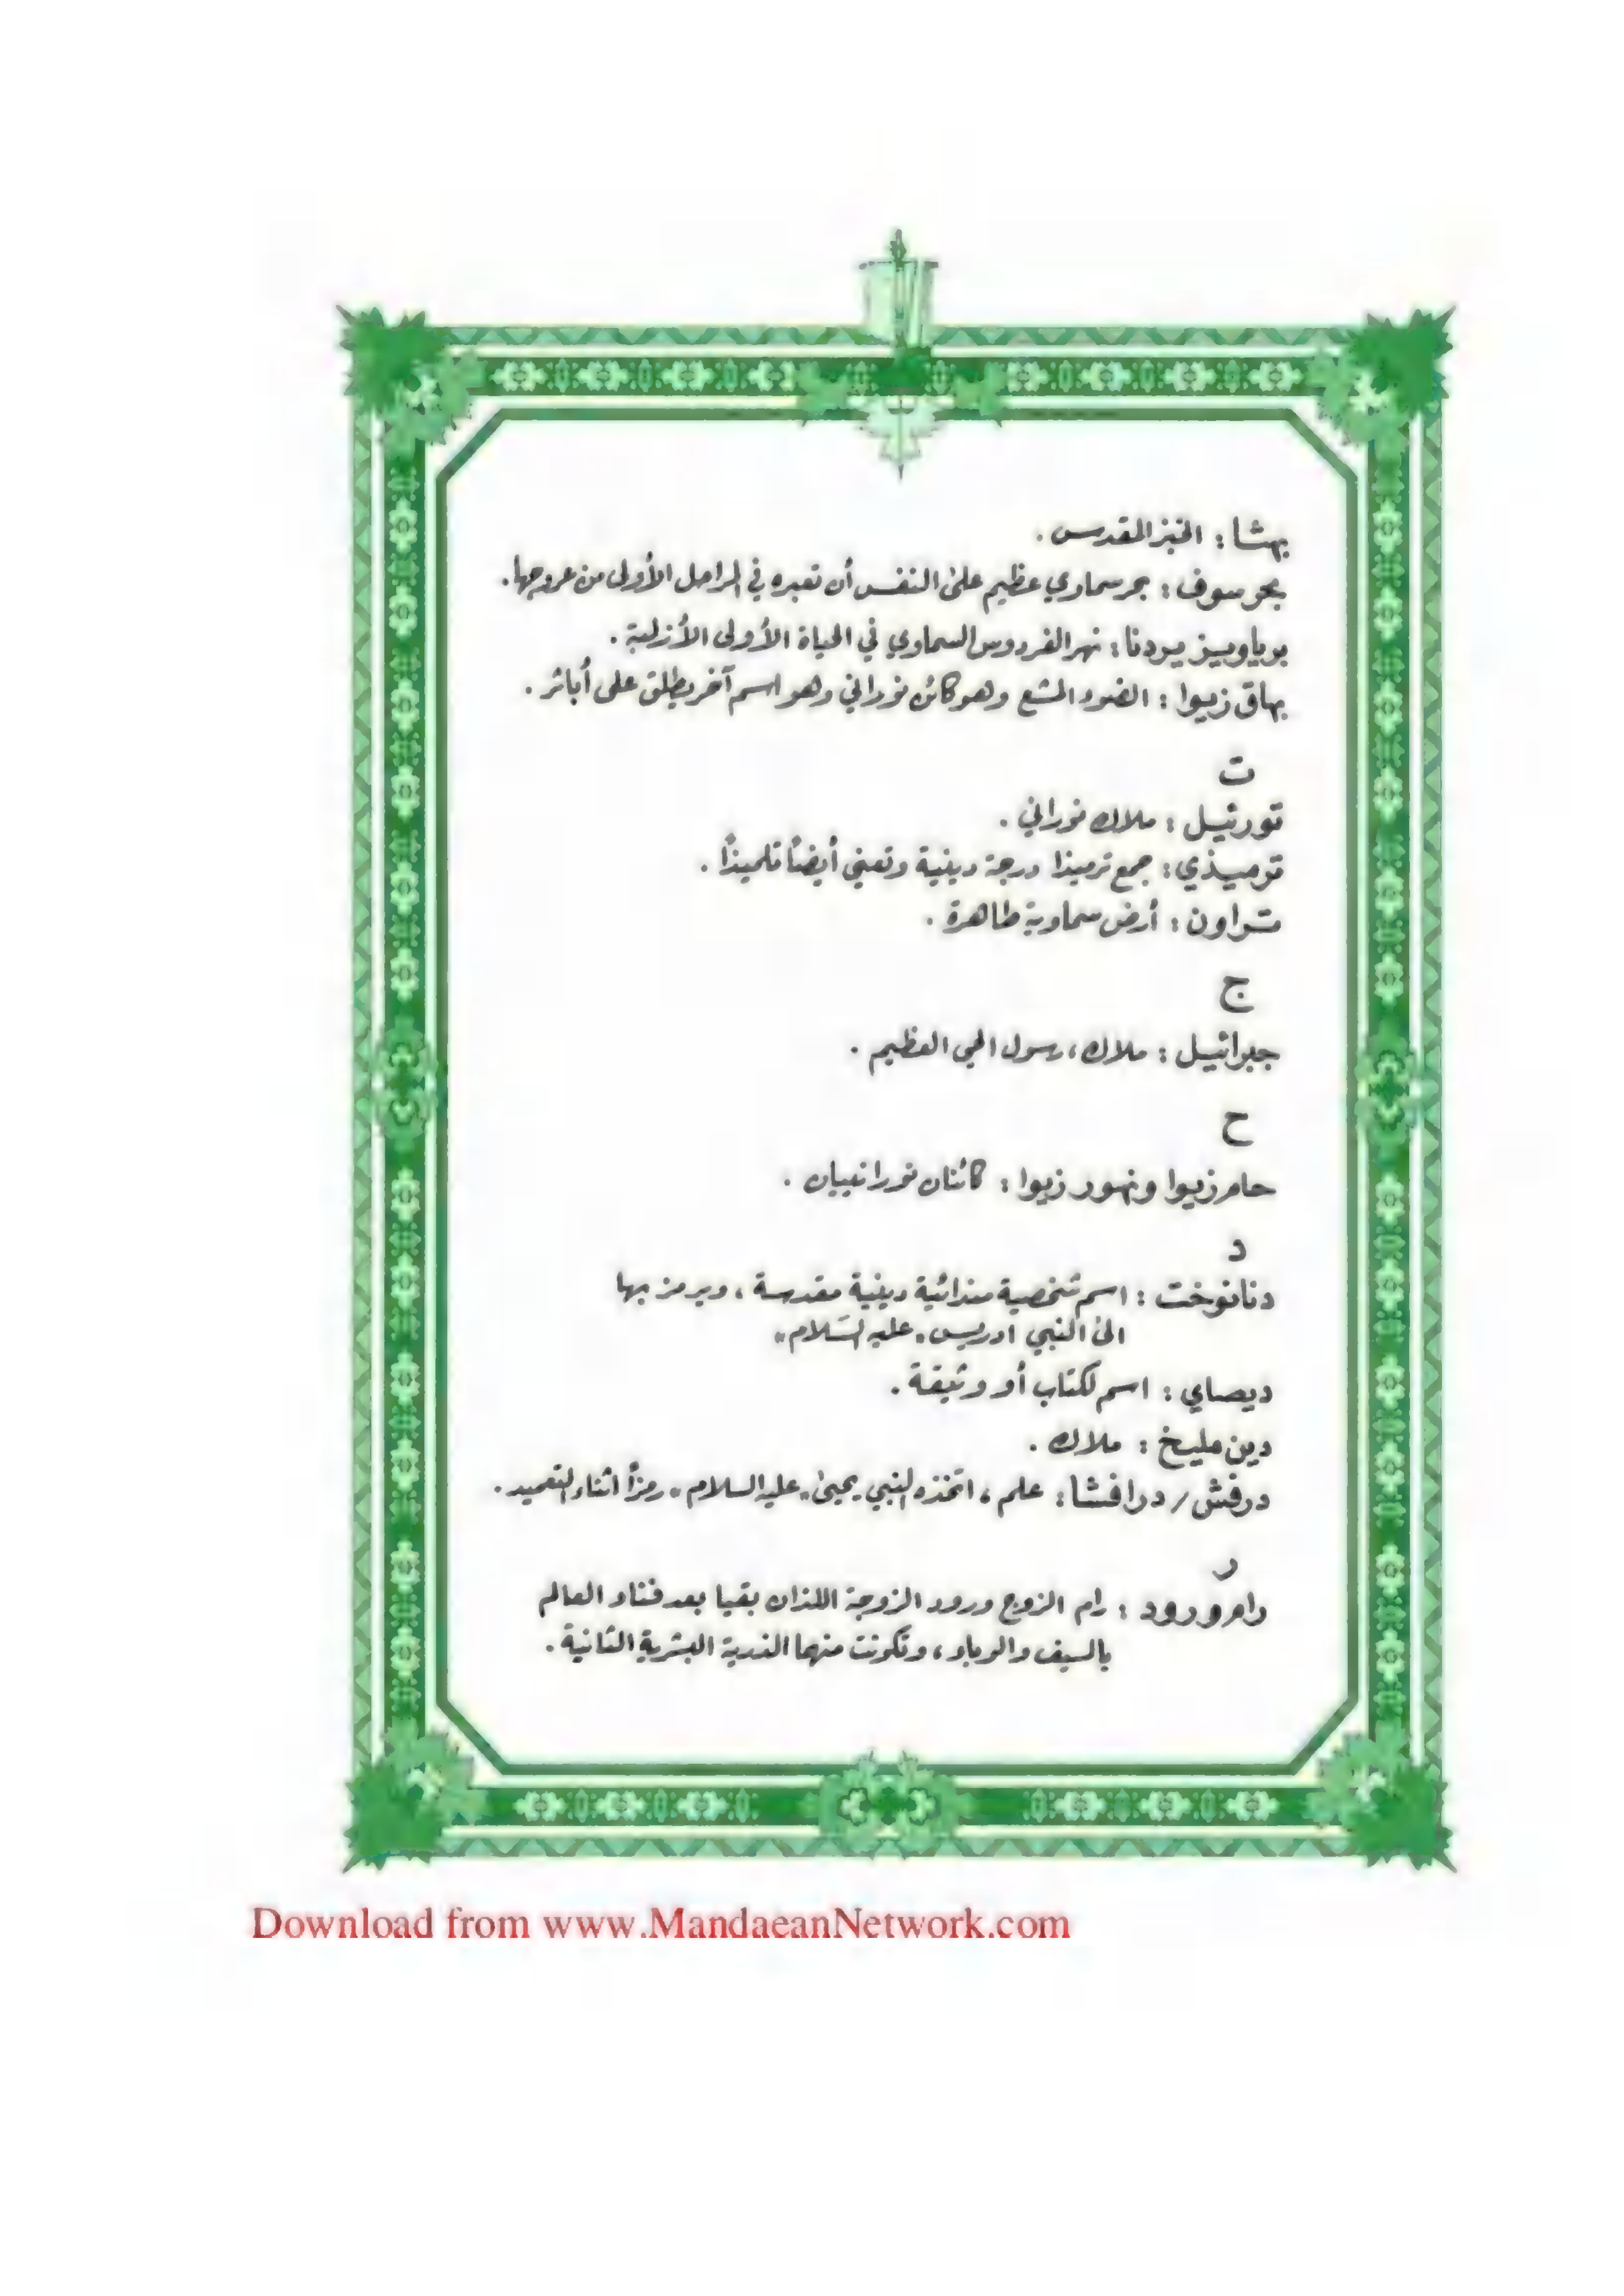 بهثا : الخبز المقدس .
بحر سوف : بحر سماوي عظيم على النفس أن تعبره في المراحل الأولى من عروجها .
برياويز يردنا : نهر الفردوس السماوي في الحياة الأولى الأزلية .
بهاق زيوا : الضوء المشع وهو كائن نوراني وهو اسم آخر يطلق على أباثر .
ت
تورئيل : ملاك نوراني .
ترميذي : جمع ترميذا درجة دينية وتعني أيضاً تلميذاً .
تراون : أرض سماوية طاهرة .
ج
جبرائيل : ملاك ، رسول الحي العظيم .
ح
حام زيوا ونهور زيوا : كائنان نورانييان .
د
دنانوخت : اسم شخصية مندائية دينية مقدسة ، ويرمز بها
الى النبي ادريس "عليه السَلام"
ديصاي : اسم لكتاب أو وثيقة .
دين مليخ : ملاك .
درفش / درافشا : علم ، اتخذه النبي يحيى "عليه السلام" رمزاً اثناء التعميد .
ر
رام ورود : رام الزوج ورود الزوجة اللذان بقيا بعد فناء العالم
بالسيف والوباء ، وتكونت منهما الذرية البشرية الثانية .
Download from www.MandaeanNetwork.com